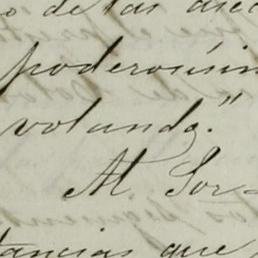 o de las
poderosisim
volando."
Al Sor-
tancias que